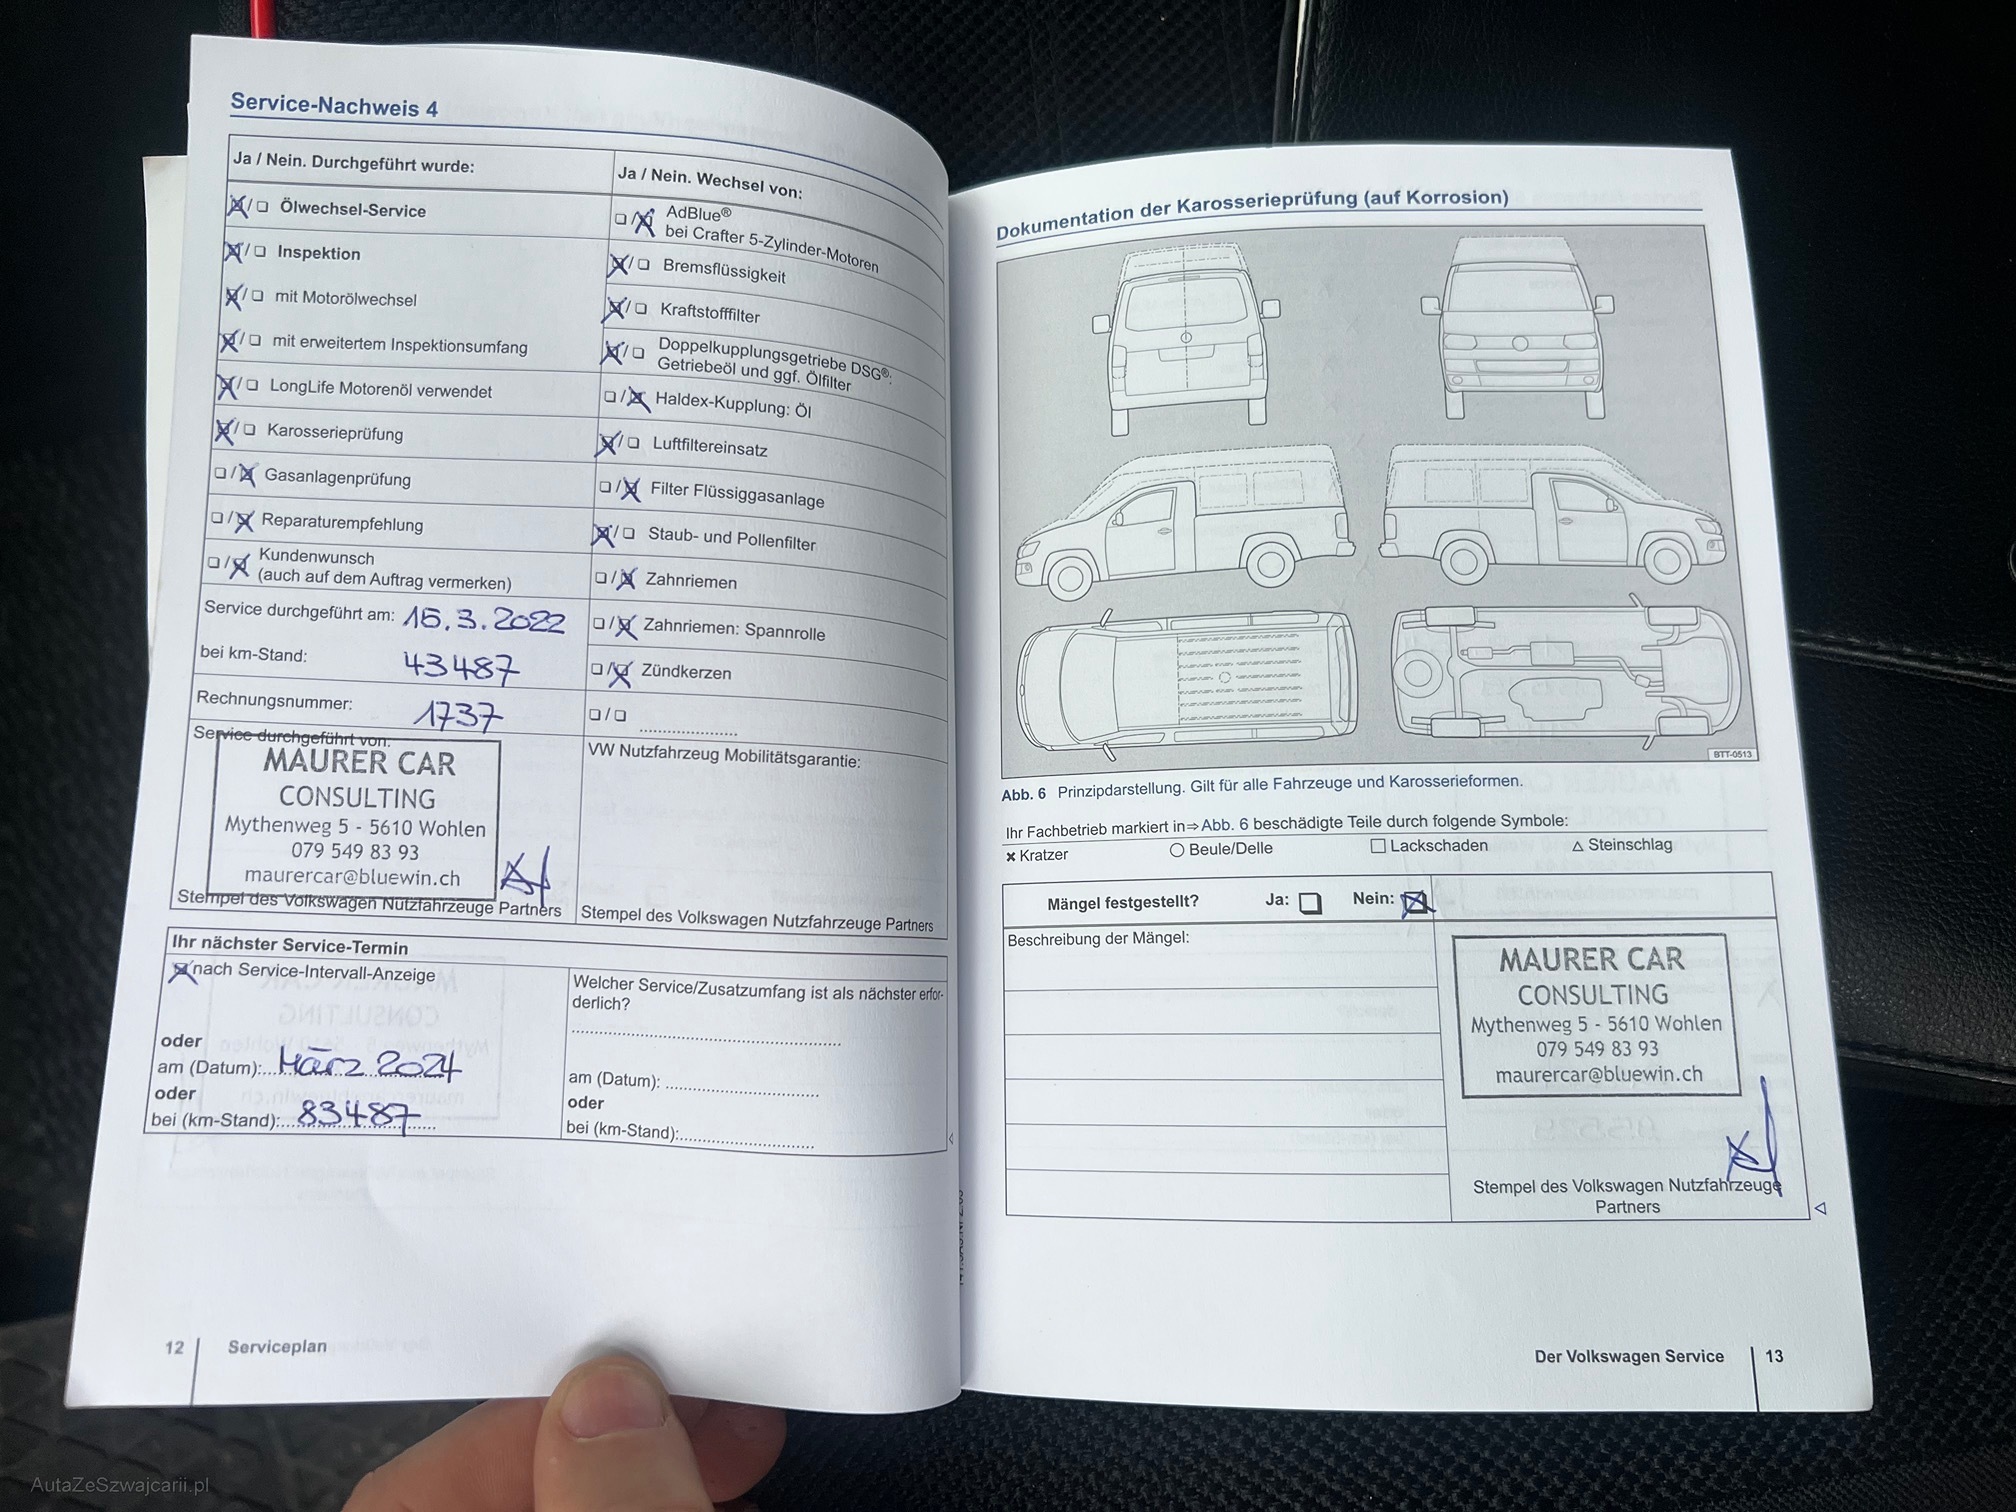 Service-Nachweis 4
Ja / Nein. Durchgeführt wurde:
☒/☐ Ölwechsel-Service
☒/☐ Inspektion
☒/☐ mit Motorölwechsel
☒/☐ mit erweitertem Inspektionsumfang
☒/☐ LongLife Motorenöl verwendet
☒/☐ Karosserieprüfung
☐/☒ Gasanlagenprüfung
☐/☒ Reparaturempfehlung
☐/☒ Kundenwunsch
(auch auf dem Auftrag vermerken)
Service durchgeführt am: 15.3.2022
bei km-Stand: 43487
Rechnungsnummer: 1737
Service durchgeführt von:
MAURER CAR
CONSULTING
Mythenweg 5 - 5610 Wohlen
079 549 83 93
maurercar@bluewin.ch
Stempel des Volkswagen Nutzfahrzeuge Partners
Ja / Nein. Wechsel von:
☐/☒ AdBlue®
bei Crafter 5-Zylinder-Motoren
☒/☐ Bremsflüssigkeit
☒/☐ Kraftstofffilter
☒/☐ Doppelkupplungsgetriebe DSG®:
Getriebeöl und ggf. Ölfilter
☐/☒ Haldex-Kupplung: Öl
☒/☐ Luftfiltereinsatz
☐/☒ Filter Flüssiggasanlage
☒/☐ Staub- und Pollenfilter
☐/☒ Zahnriemen
☐/☒ Zahnriemen: Spannrolle
☐/☒ Zündkerzen
☐/☐ ....................
VW Nutzfahrzeug Mobilitätsgarantie:
Stempel des Volkswagen Nutzfahrzeuge Partners
Ihr nächster Service-Termin
☒ nach Service-Intervall-Anzeige
oder
am (Datum): März 2024
oder
bei (km-Stand): 83487
Welcher Service/Zusatzumfang ist als nächster erfor-
derlich?
am (Datum): ..............................
oder
bei (km-Stand):..........................
12 Serviceplan
Dokumentation der Karosserieprüfung (auf Korrosion)
BTT-0513
Abb. 6 Prinzipdarstellung. Gilt für alle Fahrzeuge und Karosserieformen.
Ihr Fachbetrieb markiert in⇒Abb. 6 beschädigte Teile durch folgende Symbole:
✖ Kratzer ○ Beule/Delle □ Lackschaden △ Steinschlag
Mängel festgestellt? Ja: ☐ Nein: ☒
Beschreibung der Mängel:
MAURER CAR
CONSULTING
Mythenweg 5 - 5610 Wohlen
079 549 83 93
maurercar@bluewin.ch
Stempel des Volkswagen Nutzfahrzeuge
Partners
Der Volkswagen Service 13
AutaZeSzwajcarii.pl